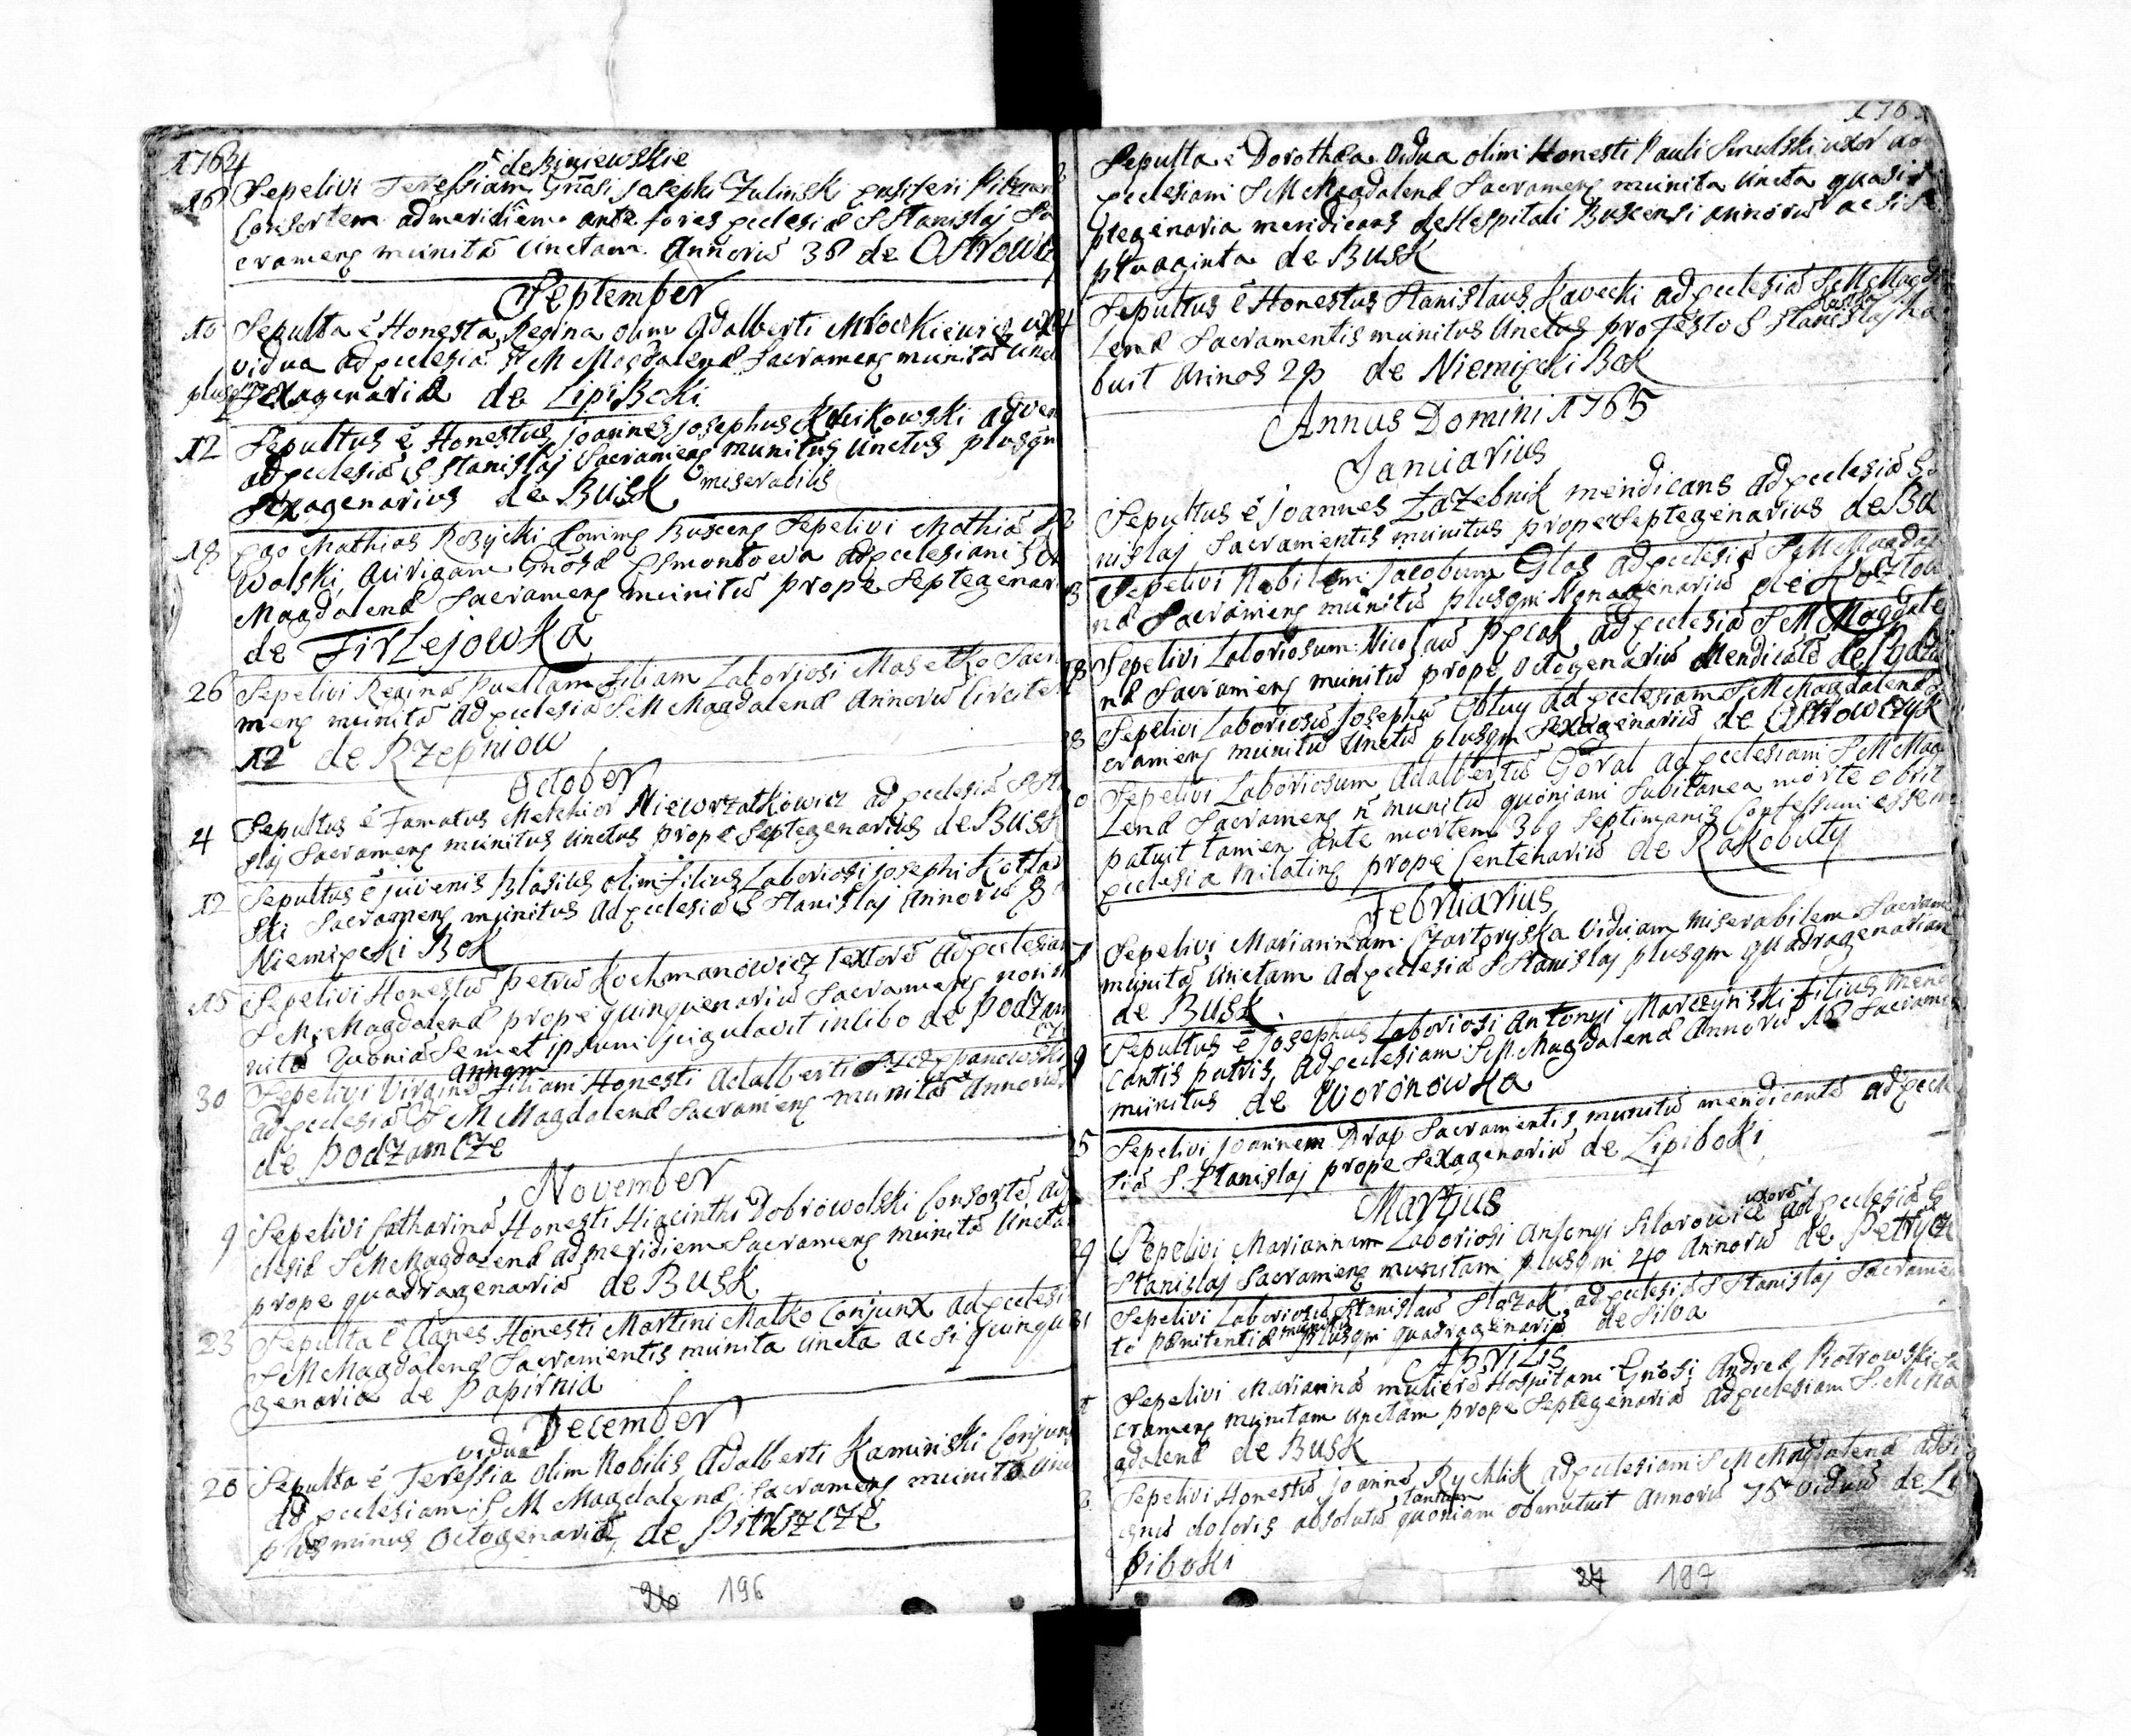 1764
de Biniewskie
18 Sepelivi Teressiam Gnosi Josephi Zulinski
Consortem ad meridiem ante fores ecclesiæ S Stanislaj Sa
cramens munitā Unctam Annorū 38 de Ostrowcz
September
10 Sepulta ē Honesta Regina olim Adalberti Mrowkiewicz
vidua ad ecclesiā S M Magdalenæ Sacramens munita Unct
plusqm sexagenaria de LipiBoki
12 Sepultus ē Honestus Joannes Josephus
ad ecclesiā S Stanislaj Sacramens munitus Unctus plusqm
sexagenarius de Busk miserabilis
18 Ego Mathias Rozycki Buscens Sepelivi Mathiā
Wolski, Aurigam Gnosæ ad ecclesiam S M
Magdalenæ Sacramens munitū prope Septegenar
de Firlejowka
26 Sepelivi Reginā puellam filiam Laboriosi Masetko Sacra
mens munitā ad ecclesiā S M Magdalenæ Annorū Circiter
12 de Rzepniow
October
4 Sepultus ē Famatus Melchior Niewrzatkowicz ad ecclesiā S St
slaj Sacramens munitus Unctus prope Septegenarius de Busk
12 Sepultus ē juvenis Blasius olim filius Laboriosi Josephi Kotlar
ski Sacramens munitus ad ecclesiā S Stanislaj Annorū
Niemiecki Bok
15 Sepelivi Honestū Petrū Kochmanowicz textorē ad ecclesiam
S M Magdalenæ prope quinquenariū Sacramens non mu
nitū quoniā Semet ipsum jugulavit in libo de Podzam
cze
30 Sepelivi Virginē Annam filiam Honesti Adalberti Szczepanowski
ad ecclesiā S M Magdalenæ Sacramens munitā Annorū
de Podzamcze
November
9 Sepelivi Catharinā Honesti Hiacinthi Dobrowolski Consortē ad
clesiā S M Magdalenæ ad meridiem Sacramens munitā Unctā
prope quadragenariā de Busk
23 Sepulta ē Agnes Honesti Martini Matko Conjunx ad ecclesi
S M Magdalenæ Sacramentis munita Uncta ac si quinqu
genaria de Papirnia
December
vidua
28 Sepulta ē Teressia olim Nobilis Adalberti Kaminski Conjunx
ad ecclesiam S M Magdalenæ Sacramens munita Unc
plus minus Octogenaria, de Pitrzicze
26 196
176
Sepulta ē Dorothea Vidua olim Honesti Pauli Smulski uxor ad
ecclesiam S M Magdalenæ Sacramens munita Uncta quasi
ptegenaria mendicans de Hospitali Buscensi annorū ac si Se
ptuaginta de Busk
Sepultus ē Honestus Stanislaus Kavecki ad ecclesiā S M Magda
lenæ Sacramentis munitus Unctus pro festo S Stanislaj Kostka ha
buit Annos 28 de Niemiecki Bok
Annus Domini 1765
Januarius
Sepultus ē Joannes Łazebnik mendicans ad ecclesiā S
nislaj Sacramentis munitus prope Septegenarius de Bu
Sepelivi Nobilem Jacobum Glos ad ecclesiā S M Magdale
næ Sacramens munitū plusqm Nonagenariū de Kozlow
18 Sepelivi Laboriosum Nicolaū ad ecclesiā S M Magdale
næ Sacramens munitū prope Octogenariū Mendicatē de
28 Sepelivi Laboriosū Josephū Obluy ad ecclesiam S M Magdalenæ
cramens munitū Unctū plusqm Sexagenariū de Ostrowczyk
Sepelivi Laboriosum Adalbertū Goral ad ecclesiam S M Mag
lenæ Sacramens n munitū quoniam Subitanea morte obiit
patuit tamen ante mortem Septimanis Confessum esse in
ecclesia Milatins prope Centenariū de Rakobuty
Februarius
Sepelivi Mariannam Czartoryska viduam miserabilem Sacram
munitā Unctam ad ecclesiā S Stanislaj plusqm quadragenariam
de Busk.
9 Sepultus ē Josephus Laboriosi Antonyi Marczynski filius mendi
cantis patris, ad ecclesiam S M Magdalenæ Annorū 18 Sacramens
munitus de Woronowka
25 Sepelivi Joannem Drap Sacramentis munitū mendicantē ad eccle
siā S Stanislaj prope Sexagenariū de Lipiboki
Martius
29 Sepelivi Mariannam Laboriosi Antonyi Silarowicz uxorē ad ecclesiā S
Stanislaj Sacramens munitam plusqm 40 Annorū de Petrycz
31 Sepelivi Laboriosū Stanislaū Slazak ad ecclesiā S Stanislaj Sacramen
to pænitentiæ munitū plusqm quadragenariū de Silva
Aprilis
Sepelivi Mariannā mulierē Hospitam Gnosi Andreæ Piotrowski Sa
cramens munitam Unctam prope Septegenariā ad ecclesiam S. M Ma
gdalenæ de Busk
Sepelivi Honestū Joannē Rychlik ad ecclesiam S M Magdalenæ ad Si
gnū doloris absolutū tantum quoniam obmutuit Annorū 75 viduū de Li
piboki
27 197